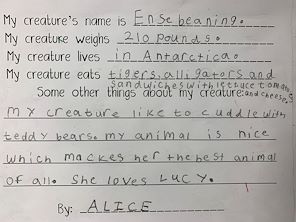 My creature's name is Ense beaning.
My creature weighs 210 pounds.
My creature lives in Antarctica.
My creature eats tigers, alligators and
sandwiches with lettuce tomatoes
and cheese,
Some other things about my creature:
my creature like to cuddle with
teddy bears. my animal is nice
which mackes her the best animal
of all. She loves LUCY.
By: ALICE